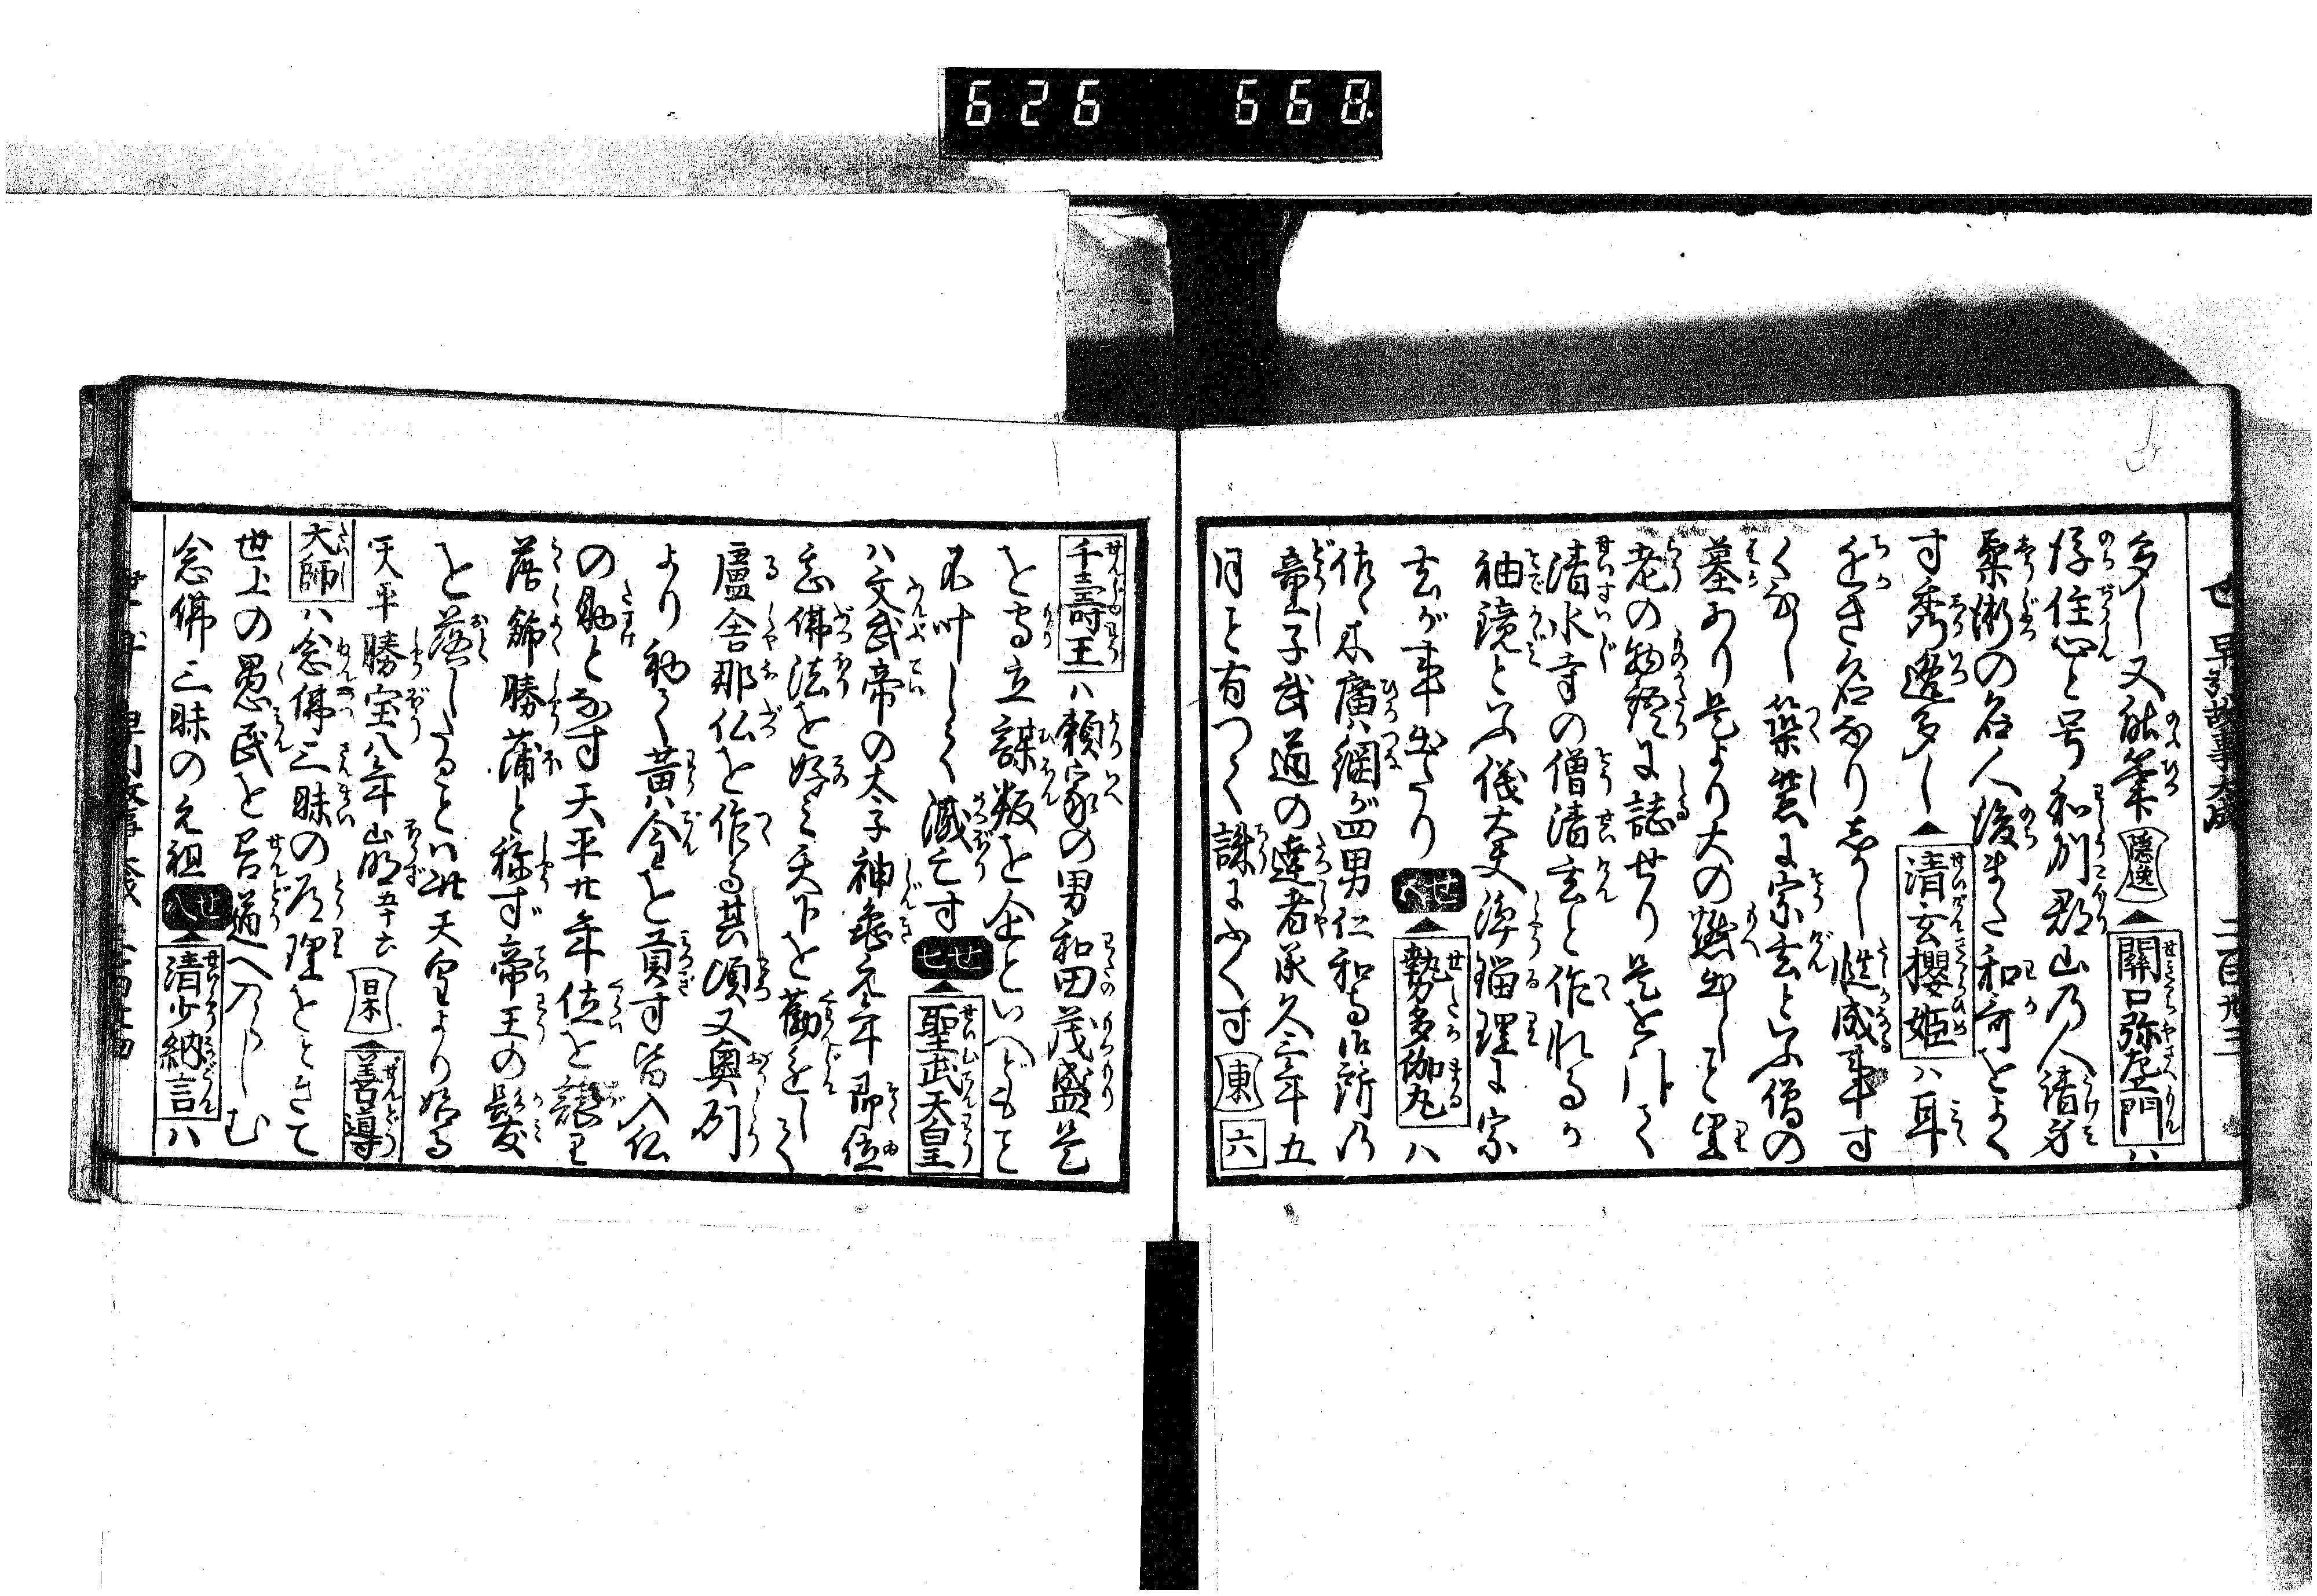 626 668
せ 早引故事大成 二百卅三
多し又能筆 隠逸 ▲關口弥左エ門ハ
後住心と号和州郡山乃人鎗身
柔術の名人後また和哥をよく
す秀逸多し ▲清玄櫻姫ハ耳
ちかき名なり志かし慥成事す
くなし築紫に宗玄といふ僧の
墓あり是より大の燃出しと里
老の物語に誌せり是を以て
清水寺の僧清玄と作れるか
袖鏡といふ儀太夫浄瑠理に宗
玄が事出たり せ六 ▲勢多伽丸ハ
佐々木廣綱が四男仁和寺御所乃
童子武道の達者承久三年五
月と有つて誅にふくす 東 六
千壽王ハ頼家の男和田茂盛是
を守立謀叛を企といへども
不叶して滅亡す せ七 ▲聖武天皇
ハ文武帝の太子神亀元年即位
志佛法を好ミ天下を勧進して
廬舎那仏を作る其頃又奥州
より初て黄金を貢す皆入仏
の助となす天平廿年位を譲里
落飾勝蒲と称ず帝王の髪
を落したることハ此天皇より始る
天平勝宝八年崩五十六 日本 ▲善導
大師ハ念佛三昧の道理をときて
世上の愚民を善道へ入らしむ
念佛三昧の元祖 せ八 ▲清少納言ハ